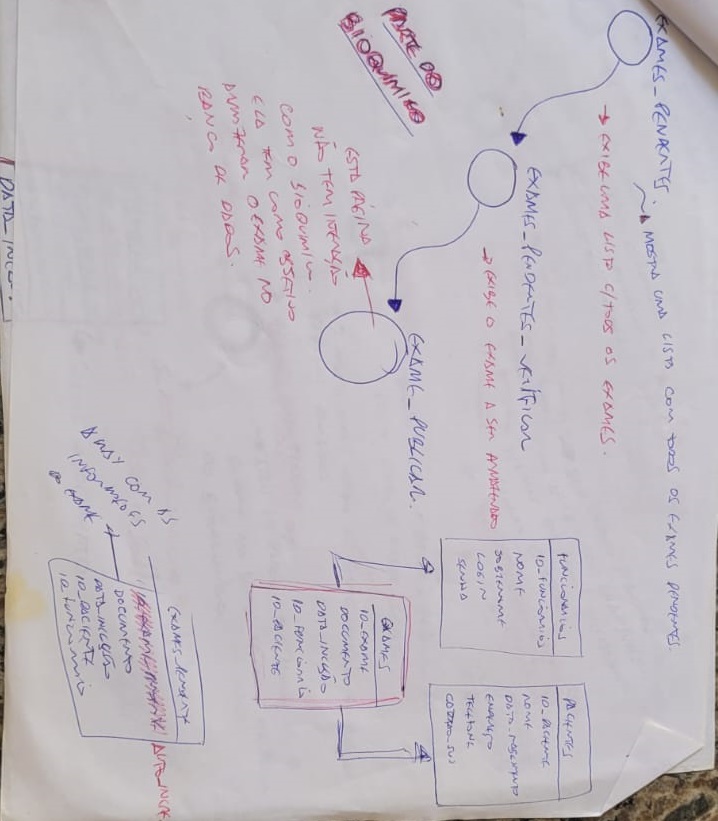 EXAMES_PENDENTES.
MOSTRA UMA LISTA COM TODOS OS EXAMES PENDENTES.
→ EXIBE UMA LISTA C/TODOS OS EXAMES.
EXAMES_PENDENTES_VERIFICAR
→ EXIBE O EXAME A SER ARMAZENADO
EXAME_PUBLICAR.
PARTE DO
BIOQUÍMICO
ESTA PÁGINA
NÃO TEM INTERAÇÃO
COM O BIOQUIMICO.
ELA TEM COMO OBJETIVO
ARMAZENAR O EXAME NO
BANCO DE DADOS.
FUNCIONÁRIOS
ID_FUNCIONÁRIOS
NOME
SOBRENOME
LOGIN
SENHA
PACIENTES
ID_PACIENTE
NOME
DATA_NASCIMENTO
ENDEREÇO
TELEFONE
CARTÃO_SUS
EXAMES
ID_EXAME
DOCUMENTO
DATA_INCLSÃO
ID_FUNCIONÁRIO
ID_PACIENTE
EXAMES_PENDENTE
AUTO_INCRE
DOCUMENTO
DATA_INCLSÃO
ID_PACIENTE
ID_FUNCIONÁRIO
ARRAY COM AS
INFORMAÇÕES
DO EXAME